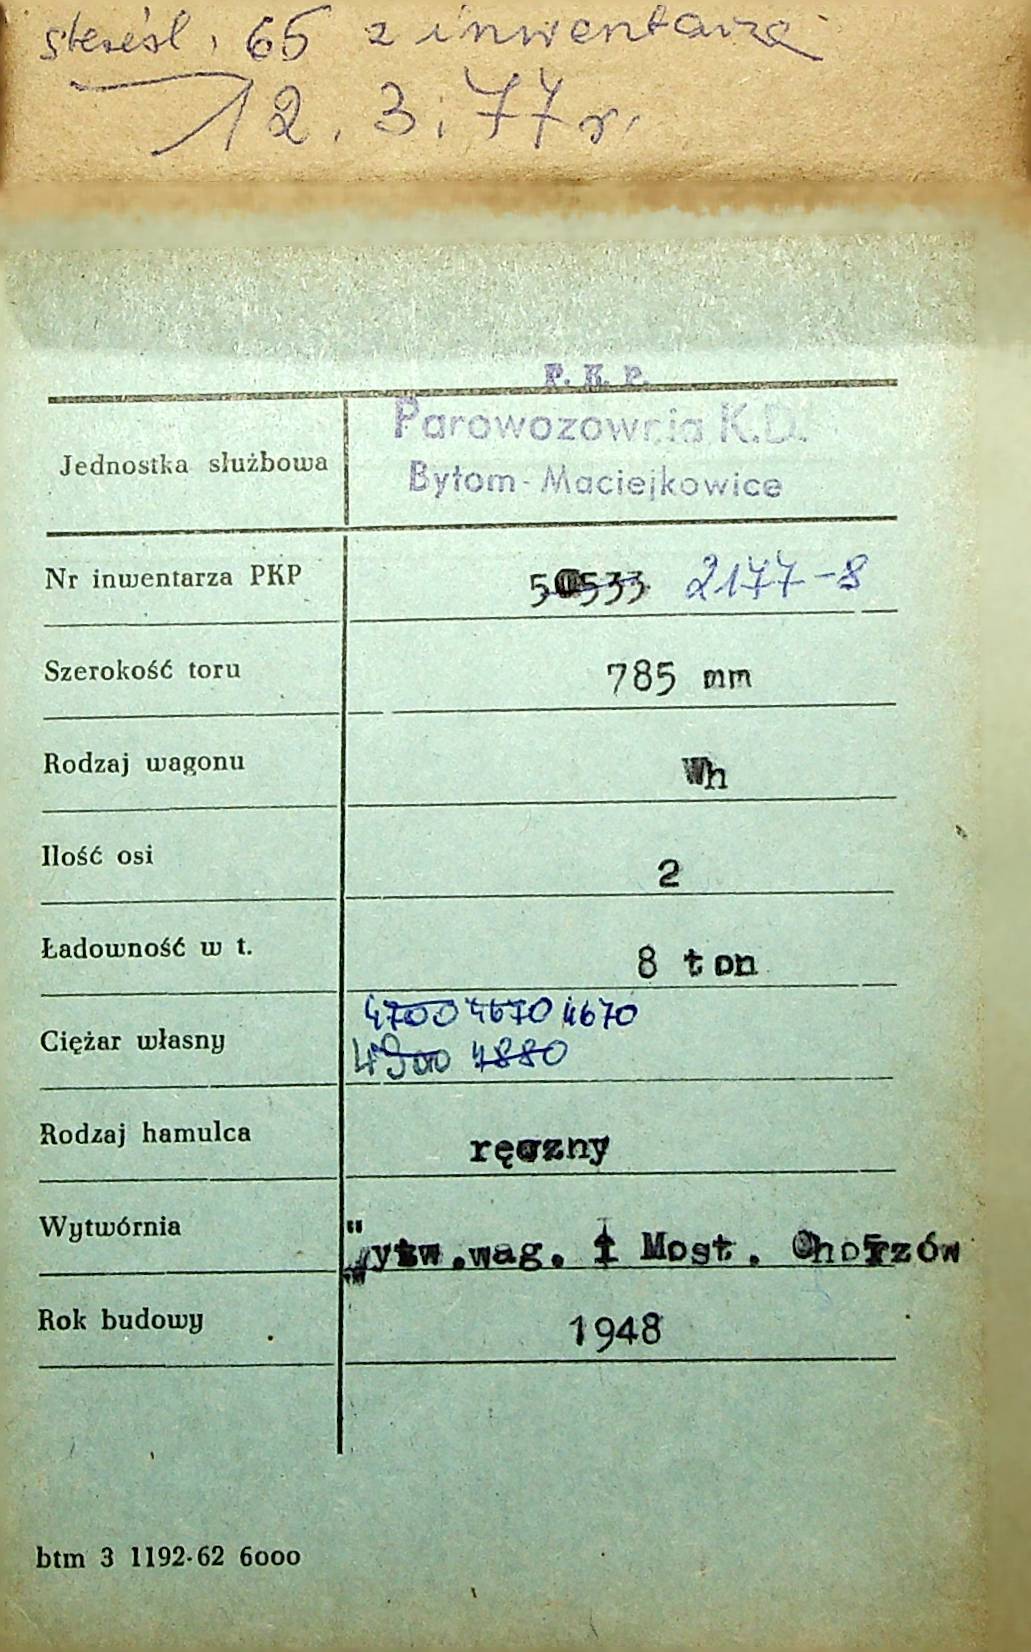 skreśl. 65 z inwentarza
12.3.77 r.
P. K. P.
Parowozownia K.D.
Jednostka służbowa
Bytom-Maciejkowice
Nr inwentarza PKP 50533 2177-8
Szerokość toru 785 mm
Rodzaj wagonu Wh
Ilość osi 2
Ładowność w t. 8 ton
4700 4670 4670
Ciężar własny 4900 4880
Rodzaj hamulca ręczny
Wytwórnia "Wytw.wag. i Most. Chorzów
Rok budowy 1948
btm 3 1192-62 6000